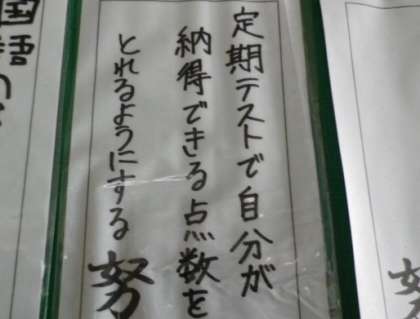 定期テストで自分が
納得できる点数を
とれるようにする
努
国語
努